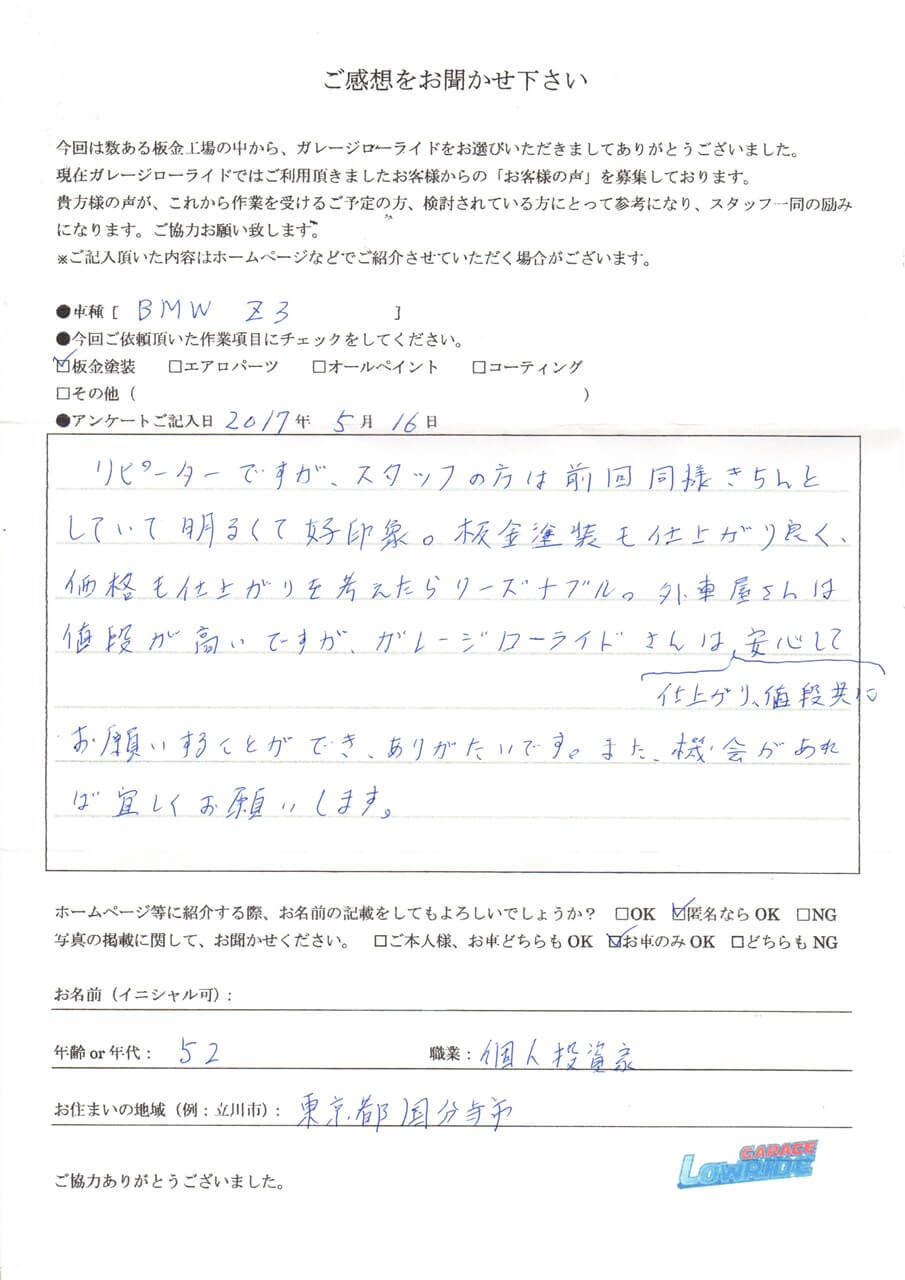 ご感想をお聞かせ下さい
今回は数ある板金工場の中から、ガレージローライドをお選びいただきましてありがとうございました。
現在ガレージローライドではご利用頂きましたお客様からの「お客様の声」を募集しております。
貴方様の声が、これから作業を受けるご予定の方、検討されている方にとって参考になり、スタッフ一同の励み
になります。ご協力お願い致します。
※ご記入頂いた内容はホームページなどでご紹介させていただく場合がございます。
●車種［ BMW Z3 ］
●今回ご依頼頂いた作業項目にチェックをしてください。
☑板金塗装 □エアロパーツ □オールペイント □コーティング
□その他（ ）
●アンケートご記入日 2017年 5月 16日
リピーターですが、スタッフの方は前回同様きちんと
していて明るくて好印象。板金塗装も仕上がり良く、
価格も仕上がりを考えたらリーズナブル。外車屋さんは
値段が高いですが、ガレージローライドさんは、安心して
仕上がり、値段共に
お願いすることができ、ありがたいです。また、機会があれ
ば宜しくお願いします。
ホームページ等に紹介する際、お名前の記載をしてもよろしいでしょうか？ □OK ☑匿名ならOK □NG
写真の掲載に関して、お聞かせください。 □ご本人様、お車どちらもOK ☑お車のみOK □どちらもNG
お名前（イニシャル可）：
年齢 or 年代： 52 職業：個人投資家
お住まいの地域（例：立川市）： 東京都国分寺市
ご協力ありがとうございました。
GARAGE
LOWRIDE